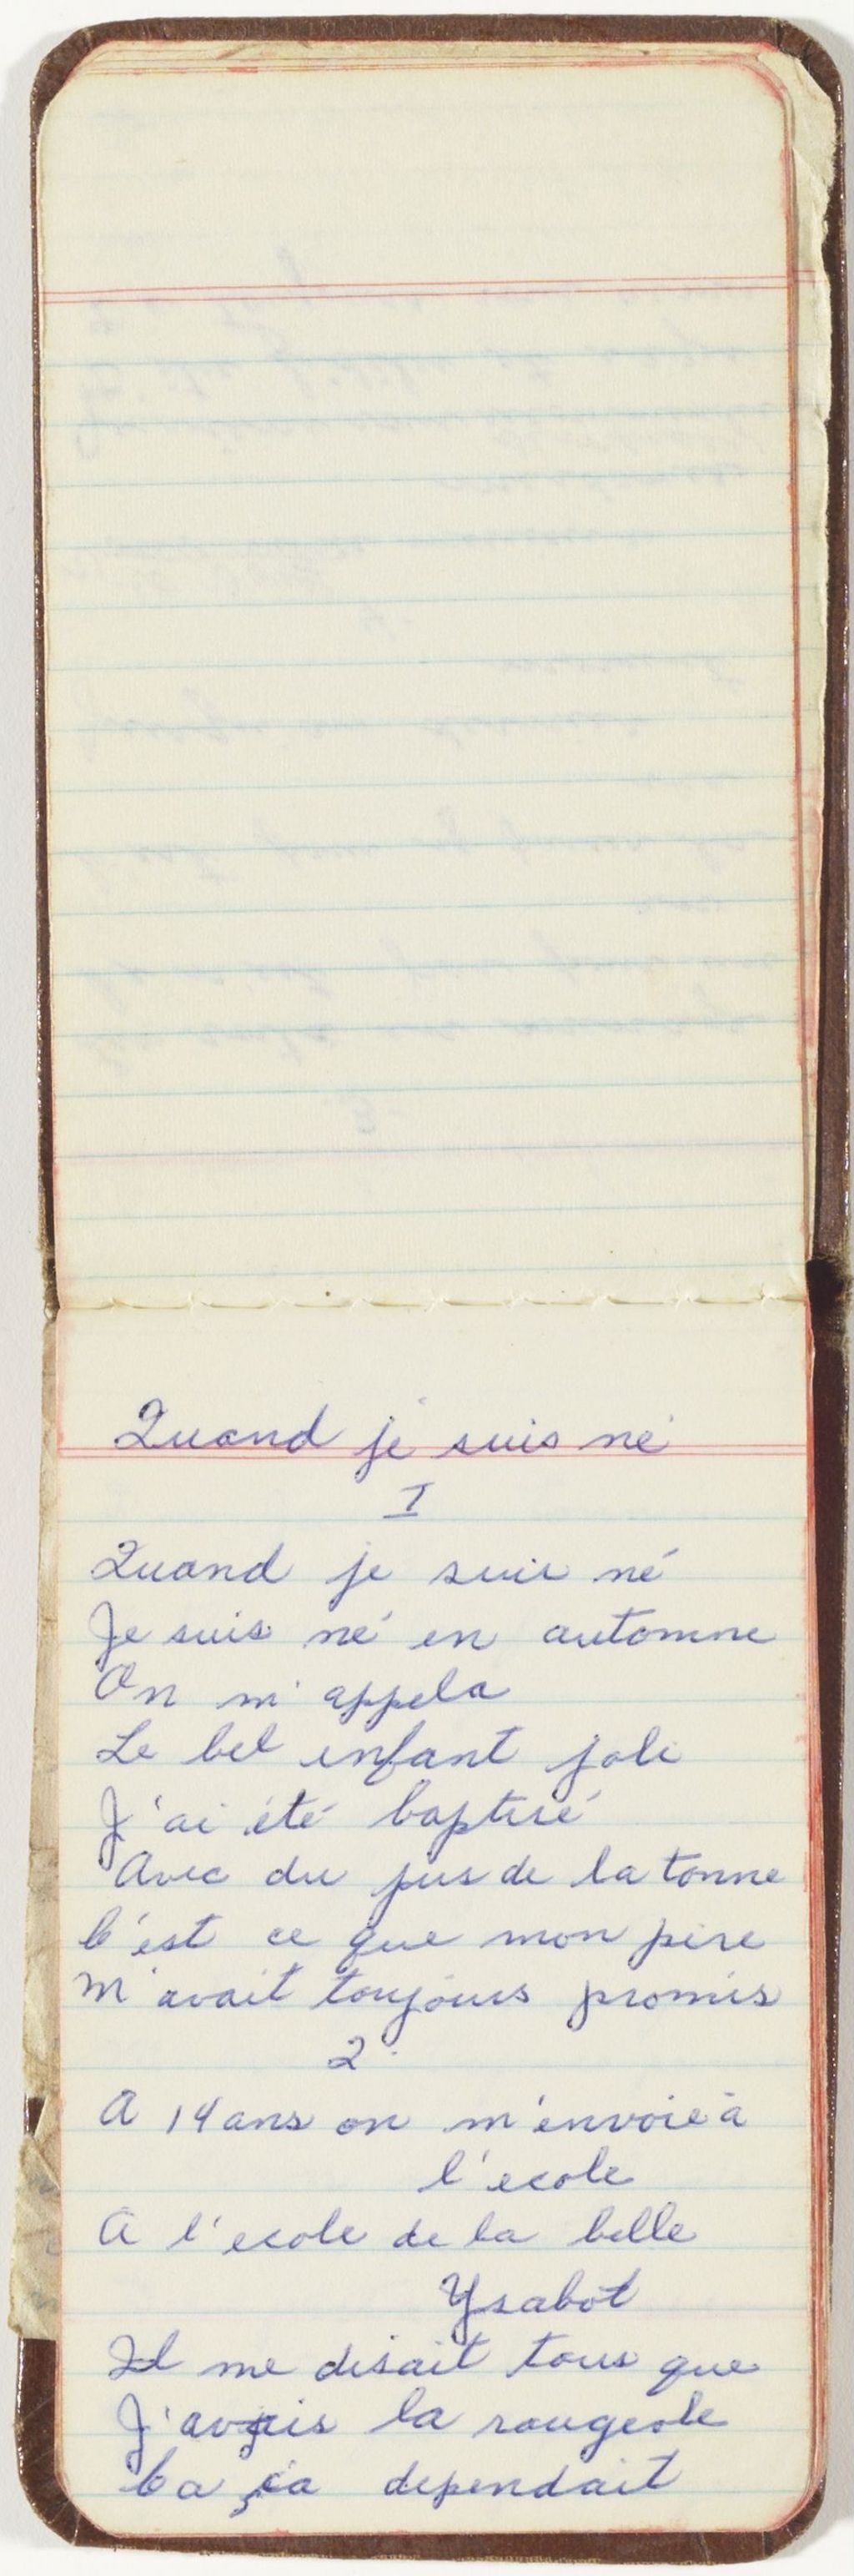 Quand je suis né
I
Quand je suis né
Je suis né en automne
On m'appela
Le bel enfant joli
J'ai été baptisé
Avec du jus de la tonne
C'est ce que mon père
M'avait toujours promis
2
A 14 ans on m'envoie à
l'ecole
A l'ecole de la belle
Ysabot
Il me disait tous que
J'avais la rougeole
Ca ça dependait